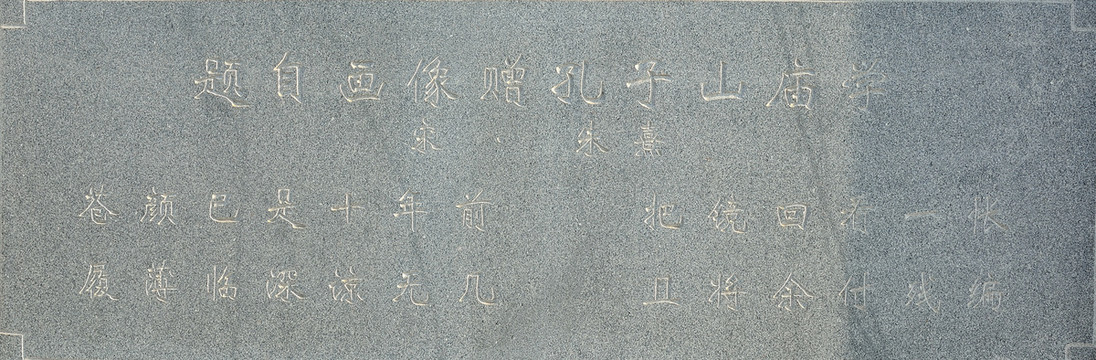 题自画像赠孔子山庙学
宋·朱熹
苍颜已是十年前 把镜回看一怅
履薄临深谅无几 且将余付残编